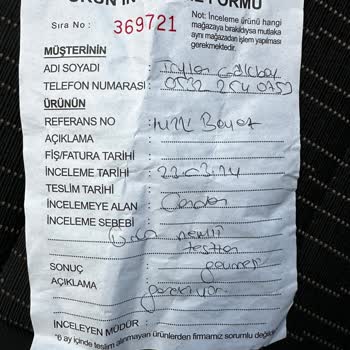 ÜRÜN İN FORMU
Sıra No : 369721
Not: İnceleme ürünü hangi
mağazaya bırakıldıysa mutlaka
aynı mağazadan işlem yapılması
gerekmektedir.
MÜŞTERİNİN
ADI SOYADI :
TELEFON NUMARASI: 0532 254 0752
ÜRÜNÜN
REFERANS NO : Beyaz
AÇIKLAMA :
FİŞ/FATURA TARİHİ :
İNCELEME TARİHİ : 22.03.24
TESLİM TARİHİ :
İNCELEMEYE ALAN :
İNCELEME SEBEBİ :
testten
SONUÇ : geçmesi
AÇIKLAMA gerekiyor
İNCELEYEN MÜDÜR :
*6 ay içinde teslim alınmayan ürünlerden firmamız sorumlu değildir